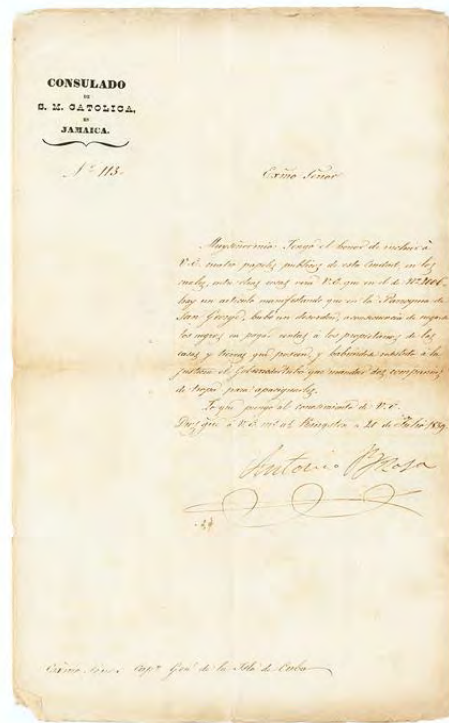 CONSULADO
DE
S. M. CATOLICA,
EN
JAMAICA.
Nº 113.
Exmo Señor
Muy señor mio: Tengo el honor de incluir à
V.E. cuatro papeles publicos de esta Ciudad, en los
cuales, entre otras cosas verá V.E. que en el de
hay un articulo manifestando que en la Parroquia de
San George, hubo un desorden, a consecuencia de
los negros en pagar rentas à los propietarios de las
casas y tierras que poseen, y habiendo à la
justicia el Gobernador tubo que mandar dos compañias
de tropa para apaciguarlos.
Lo que pongo al conocimiento de V.E.
Dios gue à V.E. ms as Kingston 21 de Julio 1839
Antonio
Exmo Señor Capn Genl de la Isla de Cuba